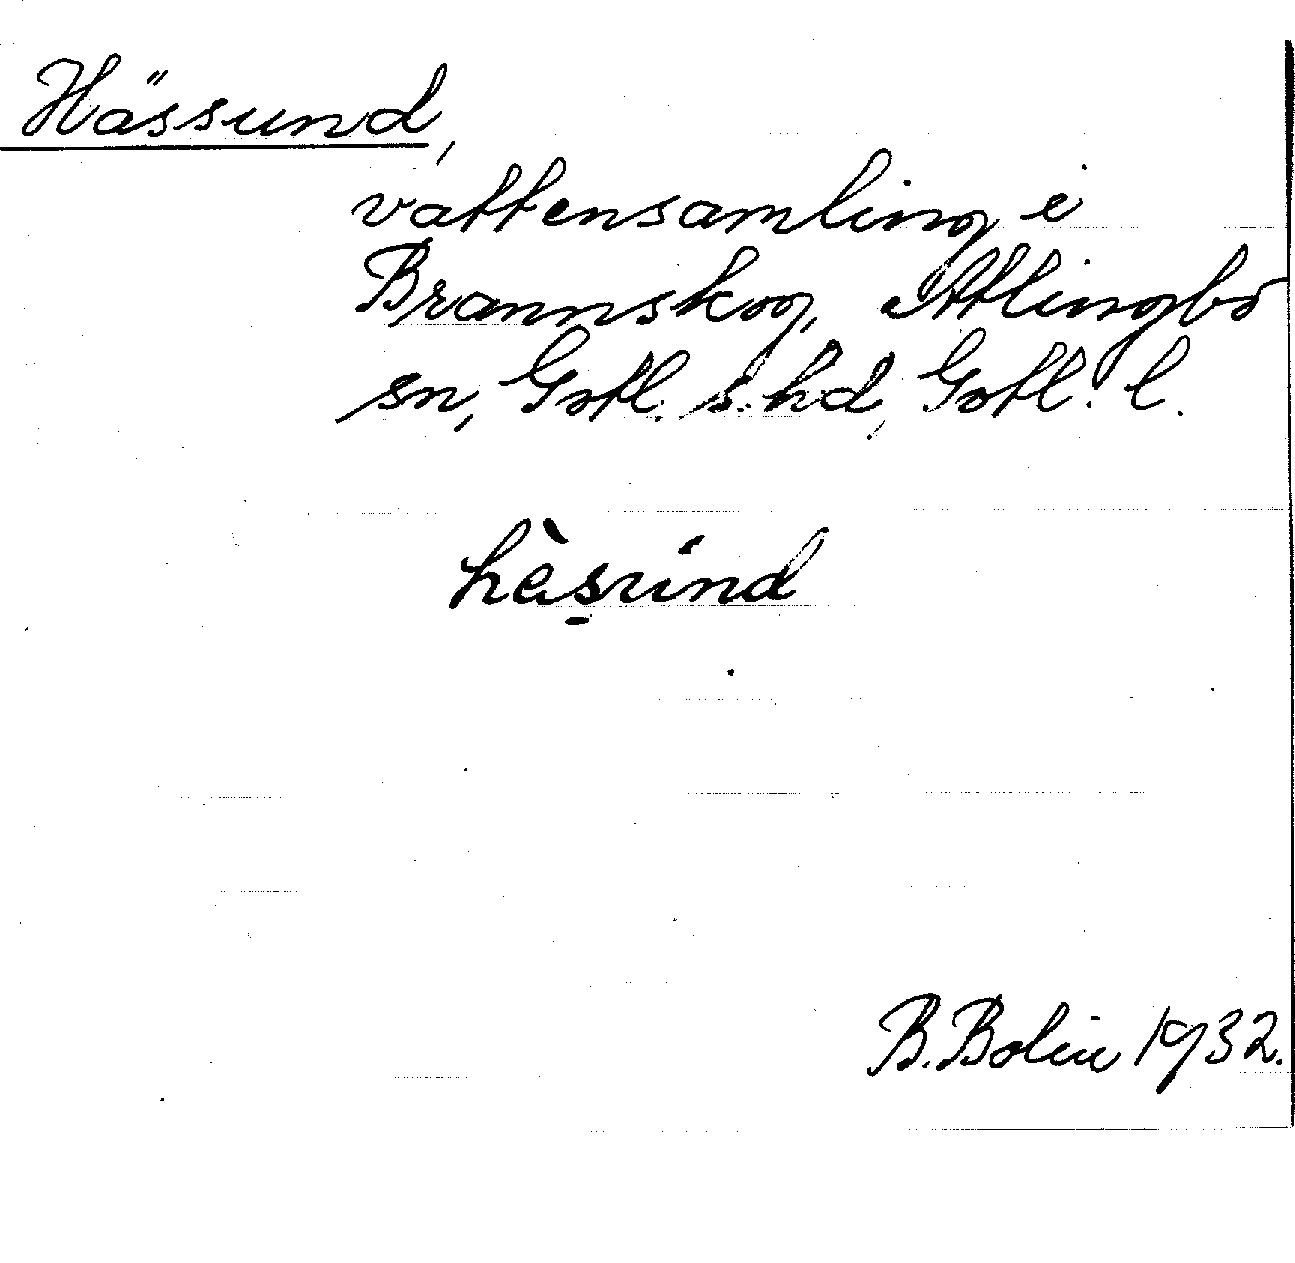 Hässund,
vattensamling i
Brannskog, Atlingbo
sn, Gotl. s. hd, Gotl. l.
B. Bolin 1932.